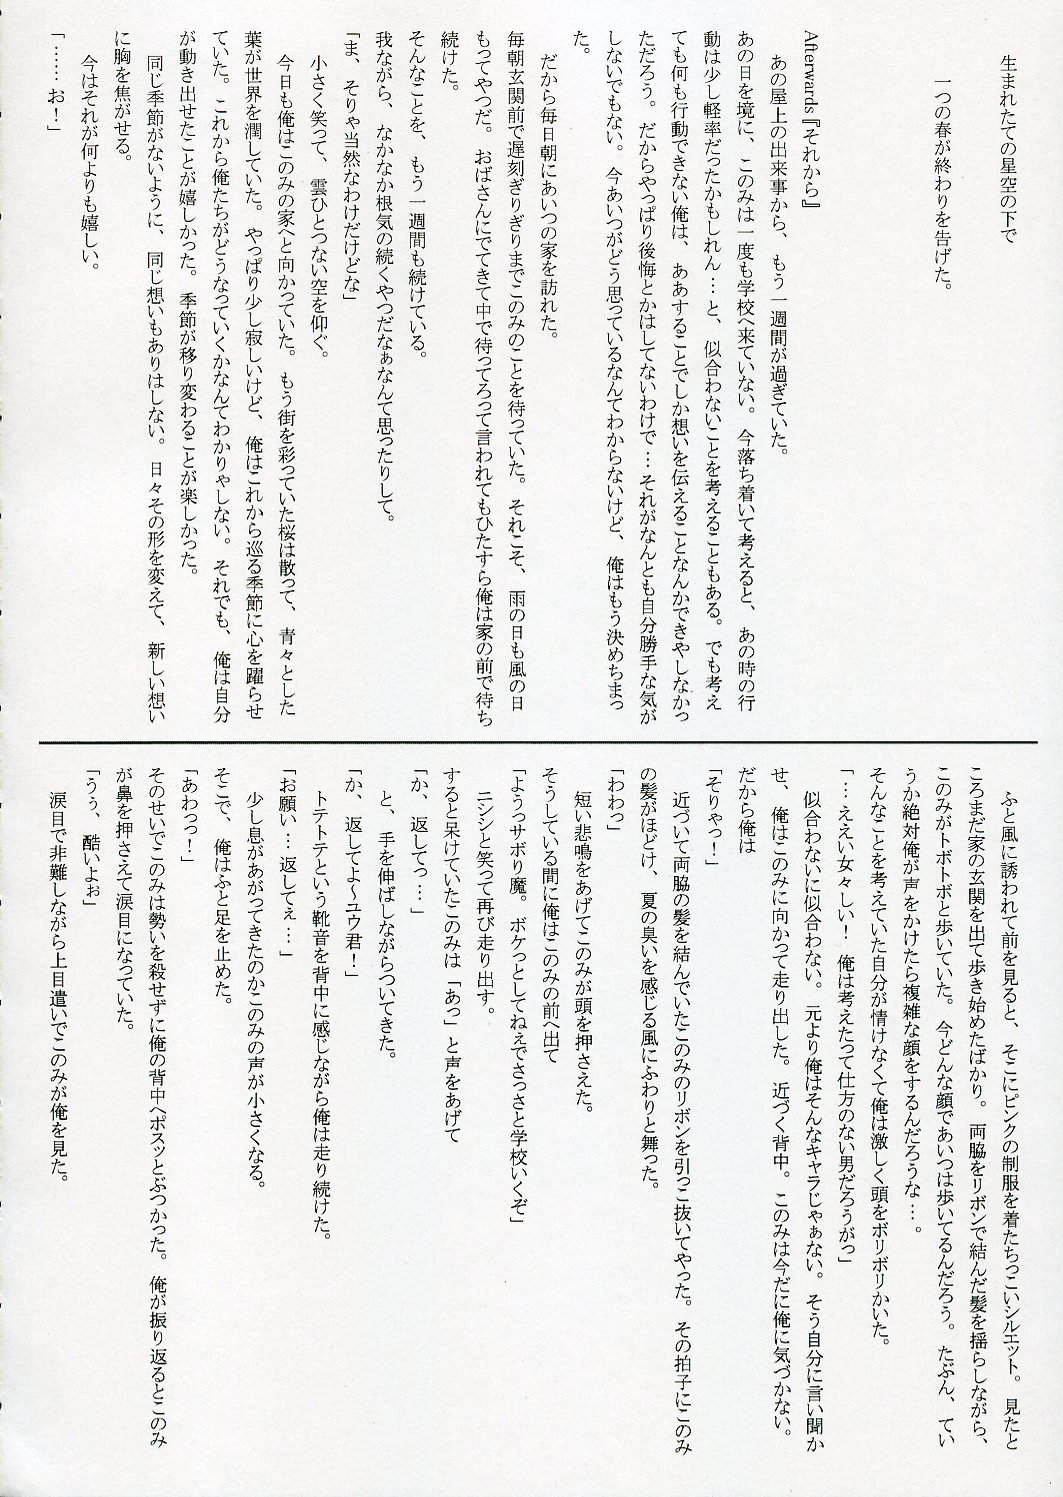 生まれたての星空の下で
一つの春が終わりを告げた。
Afterwards『それから』
あの屋上の出来事から、もう一週間が過ぎていた。
あの日を境に、このみは一度も学校へ来ていない。今落ち着いて考えると、あの時の行
動は少し軽率だったかもしれん…と、似合わないことを考えることもある。でも考え
ても何も行動できない俺は、ああすることでしか想いを伝えることなんかできやしなかっ
ただろう。だからやっぱり後悔とかはしてないわけで…それがなんとも自分勝手な気が
しないでもない。今あいつがどう思っているなんてわからないけど、俺はもう決めちまっ
た。
だから毎日朝にあいつの家を訪れた。
毎朝玄関前で遅刻ぎりぎりまでこのみのことを待っていた。それこそ、雨の日も風の日
もってやつだ。おばさんにでてきて中で待ってろって言われてもひたすら俺は家の前で待ち
続けた。
そんなことを、もう一週間も続けている。
我ながら、なかなか根気の続くやつだなぁなんて思ったりして。
「ま、そりゃ当然なわけだけどな」
小さく笑って、雲ひとつない空を仰ぐ。
今日も俺はこのみの家へと向かっていた。もう街を彩っていた桜は散って、青々とした
葉が世界を潤していた。やっぱり少し寂しいけど、俺はこれから巡る季節に心を躍らせ
ていた。これから俺たちがどうなっていくかなんてわかりゃしない。それでも、俺は自分
が動き出せたことが嬉しかった。季節が移り変わることが楽しかった。
同じ季節がないように、同じ想いもありはしない。日々その形を変えて、新しい想い
に胸を焦がせる。
今はそれが何よりも嬉しい。
「……お！」
ふと風に誘われて前を見ると、そこにピンクの制服を着たちっこいシルエット。見たと
ころまだ家の玄関を出て歩き始めたばかり。両脇をリボンで結んだ髪を揺らしながら、
このみがトボトボと歩いていた。今どんな顔であいつは歩いてるんだろう。たぶん、てい
うか絶対俺が声をかけたら複雑な顔をするんだろうな…。
そんなことを考えていた自分が情けなくて俺は激しく頭をボリボリかいた。
「…ええい女々しい！　俺は考えたって仕方のない男だろうがっ」
似合わないに似合わない。元より俺はそんなキャラじゃぁない。そう自分に言い聞か
せ、俺はこのみに向かって走り出した。近づく背中。このみは今だに俺に気づかない。
だから俺は
「そりゃっ！」
近づいて両脇の髪を結んでいたこのみのリボンを引っこ抜いてやった。その拍子にこのみ
の髪がほどけ、夏の臭いを感じる風にふわりと舞った。
「わわっ」
短い悲鳴をあげてこのみが頭を押さえた。
そうしている間に俺はこのみの前へ出て
「ようっサボり魔。ボケっとしてねぇでさっさと学校いくぞ」
ニシシと笑って再び走り出す。
すると呆けていたこのみは「あっ」と声をあげて
「か、返してっ…」
と、手を伸ばしながらついてきた。
「か、返してよ～ユウ君！」
トテトテという靴音を背中に感じながら俺は走り続けた。
「お願い…返してぇ…」
少し息があがってきたのかこのみの声が小さくなる。
そこで、俺はふと足を止めた。
「あわっっ！」
そのせいでこのみは勢いを殺せずに俺の背中へポスッとぶつかった。俺が振り返るとこのみ
が鼻を押さえて涙目になっていた。
「うぅ、酷いよぉ」
涙目で非難しながら上目遣いでこのみが俺を見た。